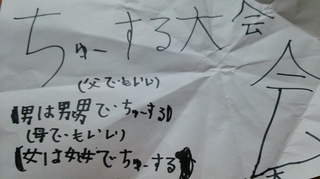 ちゅーする大会
(父でもいい)
男は男男でちゅーする
(母でもいい)
女は女女でちゅーする